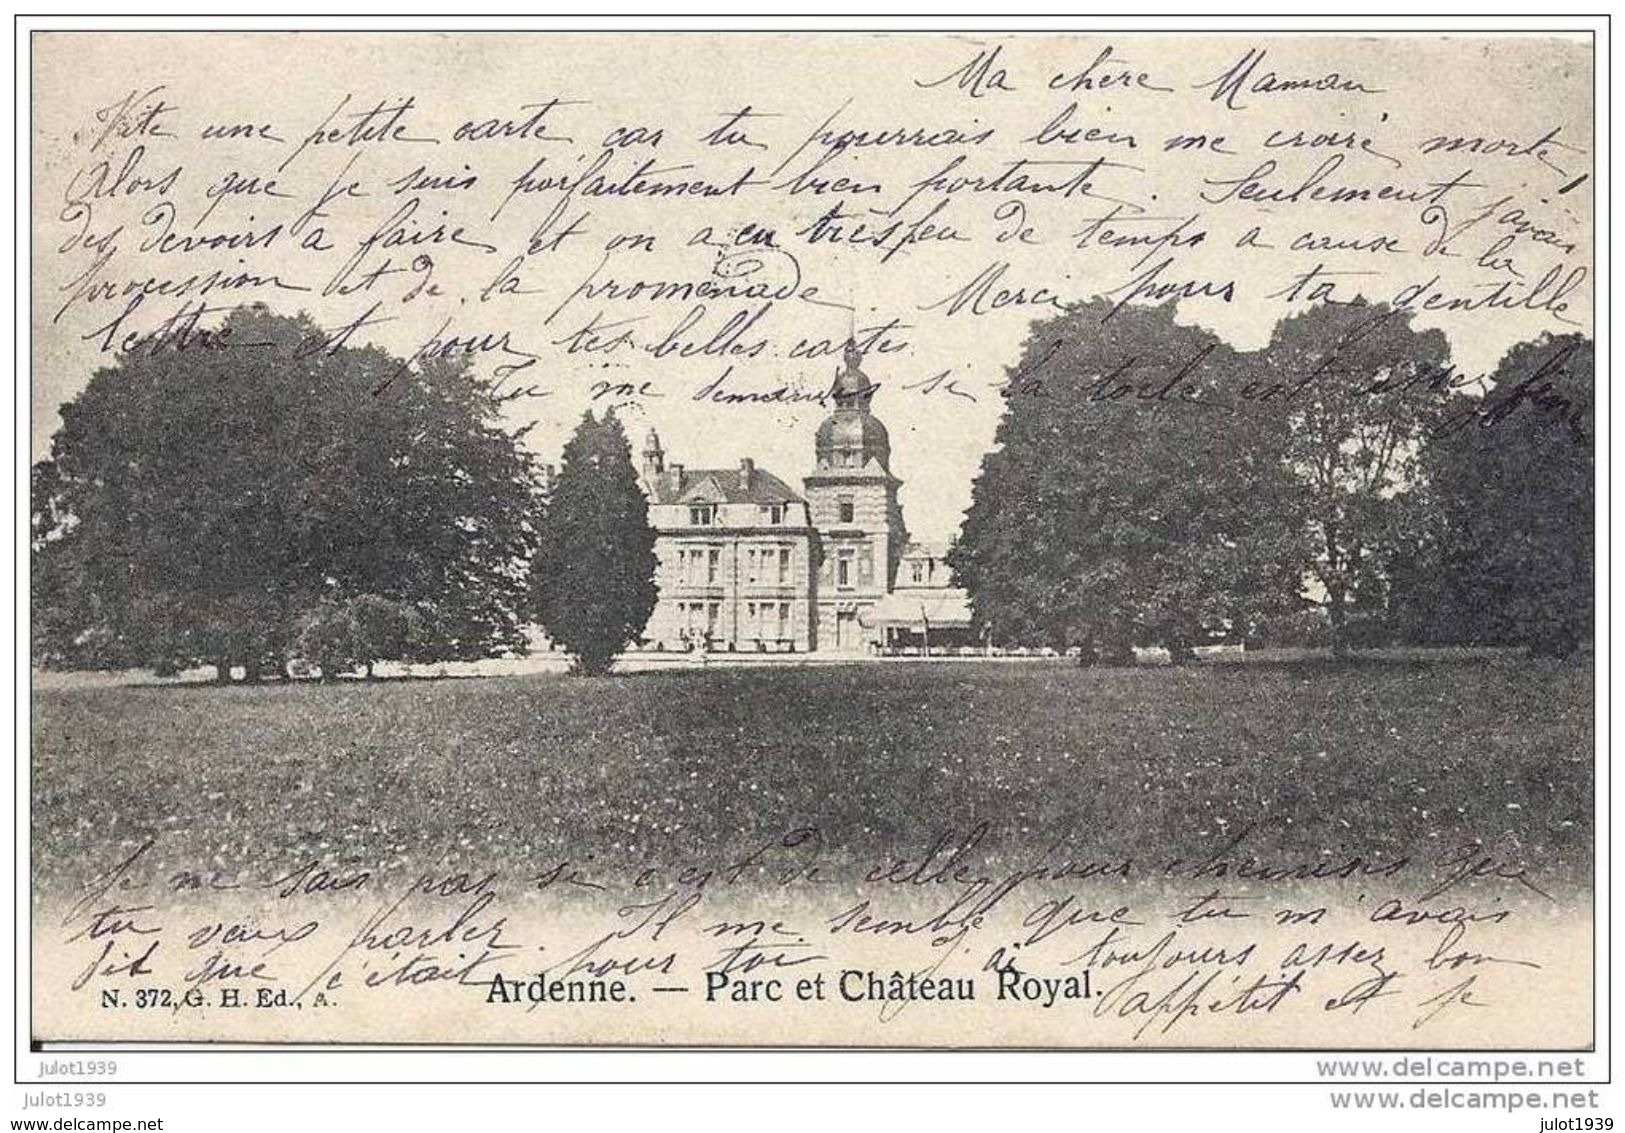 Ma chère Maman
Vite une petite carte car tu pourrais bien me croire morte
Alors que je suis parfaitement bien portante. Seulement j'avais
des devoirs à faire et on a eu très peu de temps a cause de la
procession et de la promenade. Merci pour ta gentille
lettre et pour tes belles cartes.
Tu me demandes si la toile est assez fine
Je ne sais pas si c'est de celle pour chemises que
tu veux parler. Il me semble que tu m'avais
dit que c'était pour toi J'ai toujours assez bon
appétit et je
N. 372, G. H. Ed., A.
Ardenne. — Parc et Château Royal.
julot1939
www.delcampe.net
julot1939
www.delcampe.net
www.delcampe.net
julot1939